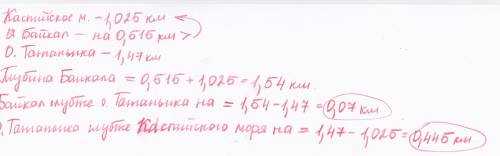 Каспийское м. - 1,025 км
О. Байкал - на 0,515 км >
О. Танганьика - 1,47 км
Глубина Байкала = 0,515 + 1,025 = 1,54 км.
Байкал глубже о. Танганьика на = 1,54 - 1,47 = 0,07 км
О. Танганьика глубже Каспийского моря на = 1,47 - 1,025 = 0,445 км